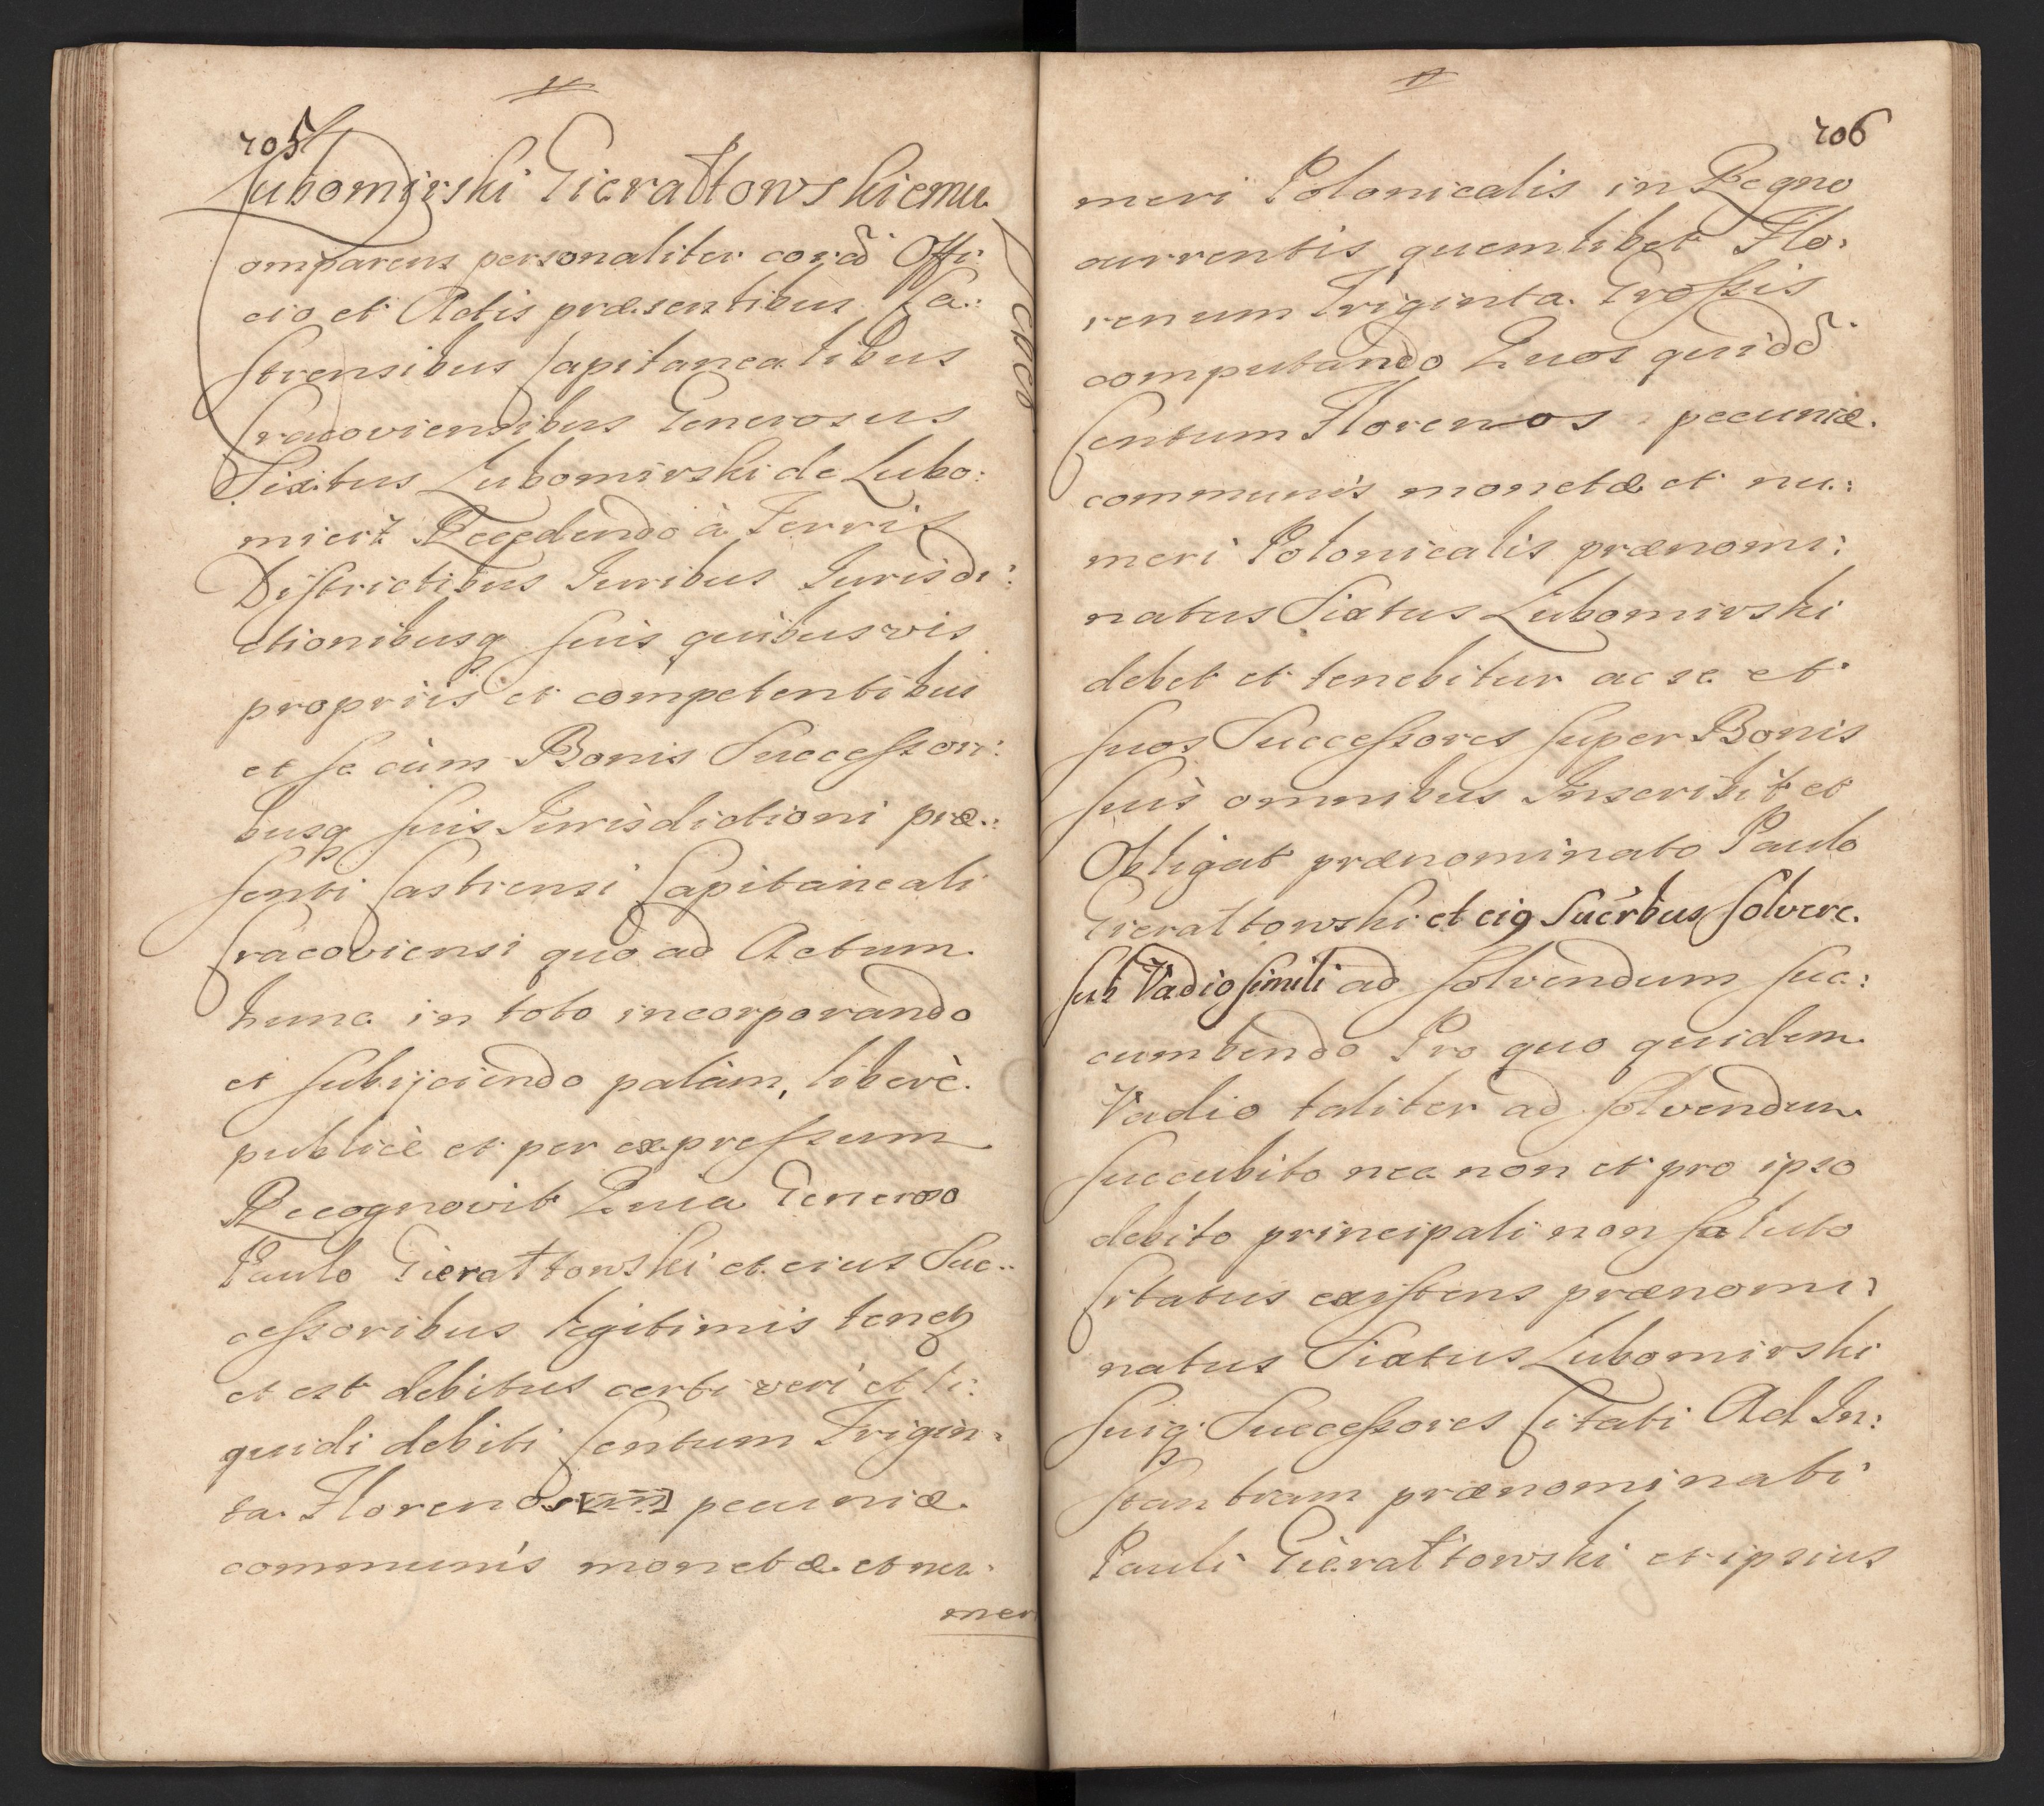 705
Lubomirski Gierałtowskiemu
Comparens personaliter corã Offi:
cio et Actis præsentibus Ca:
strensibus Capitanealibus
Cracoviensibus Generosus
Sixtus Lubomirski de Lubo:
mierz Recedendo à Terris
Districtibus Iuribus Iurisdi:
ctionibusq suis quibusvis
propriis et competentibus
et se cùm Bonis Successori:
busq suis Iurisdictioni præ:
senti Castrensi Capitaneali
Cracoviensi quo ad Actum
hunc in toto incorporando
et subijciendo palàm, liberè
publicè et per expressum
Recognovit Quia Generoso
Paulo Gierałtowski et eius Suc:
cessoribus legitimis tenet
et est debitus certi veri et li:
quidi debiti Centum Trigin:
ta Florenos pecuniæ
communis monetæ et nu:
meri
706
meri Polonicalis in Regno
currentis quemlibet Flo:
renum Triginta Grossis
computando Quos quidẽ
Centum Florenos pecuniæ
communis monetæ et nu:
meri Polonicalis prænomi:
natus Sixtus Lubomirski
debet et tenebitur ac se et
suos Successores super Bonis
suis omnibus Inscribit et
Obligat prænominato Paulo
Gierałtowski et eig Sucrbus solvere
sub Vadio simili ad solvendum suc:
cumbendo Pro quo quidem
Vadio taliter ad solvendum
succubito nec non et pro ipso
debito principali non soluto
Citatus existens prænomi:
natus Sixtus Lubomirski
suiq Successores Citati Ad In:
stantiam prænominati
Pauli Gierałtowski et ipsius